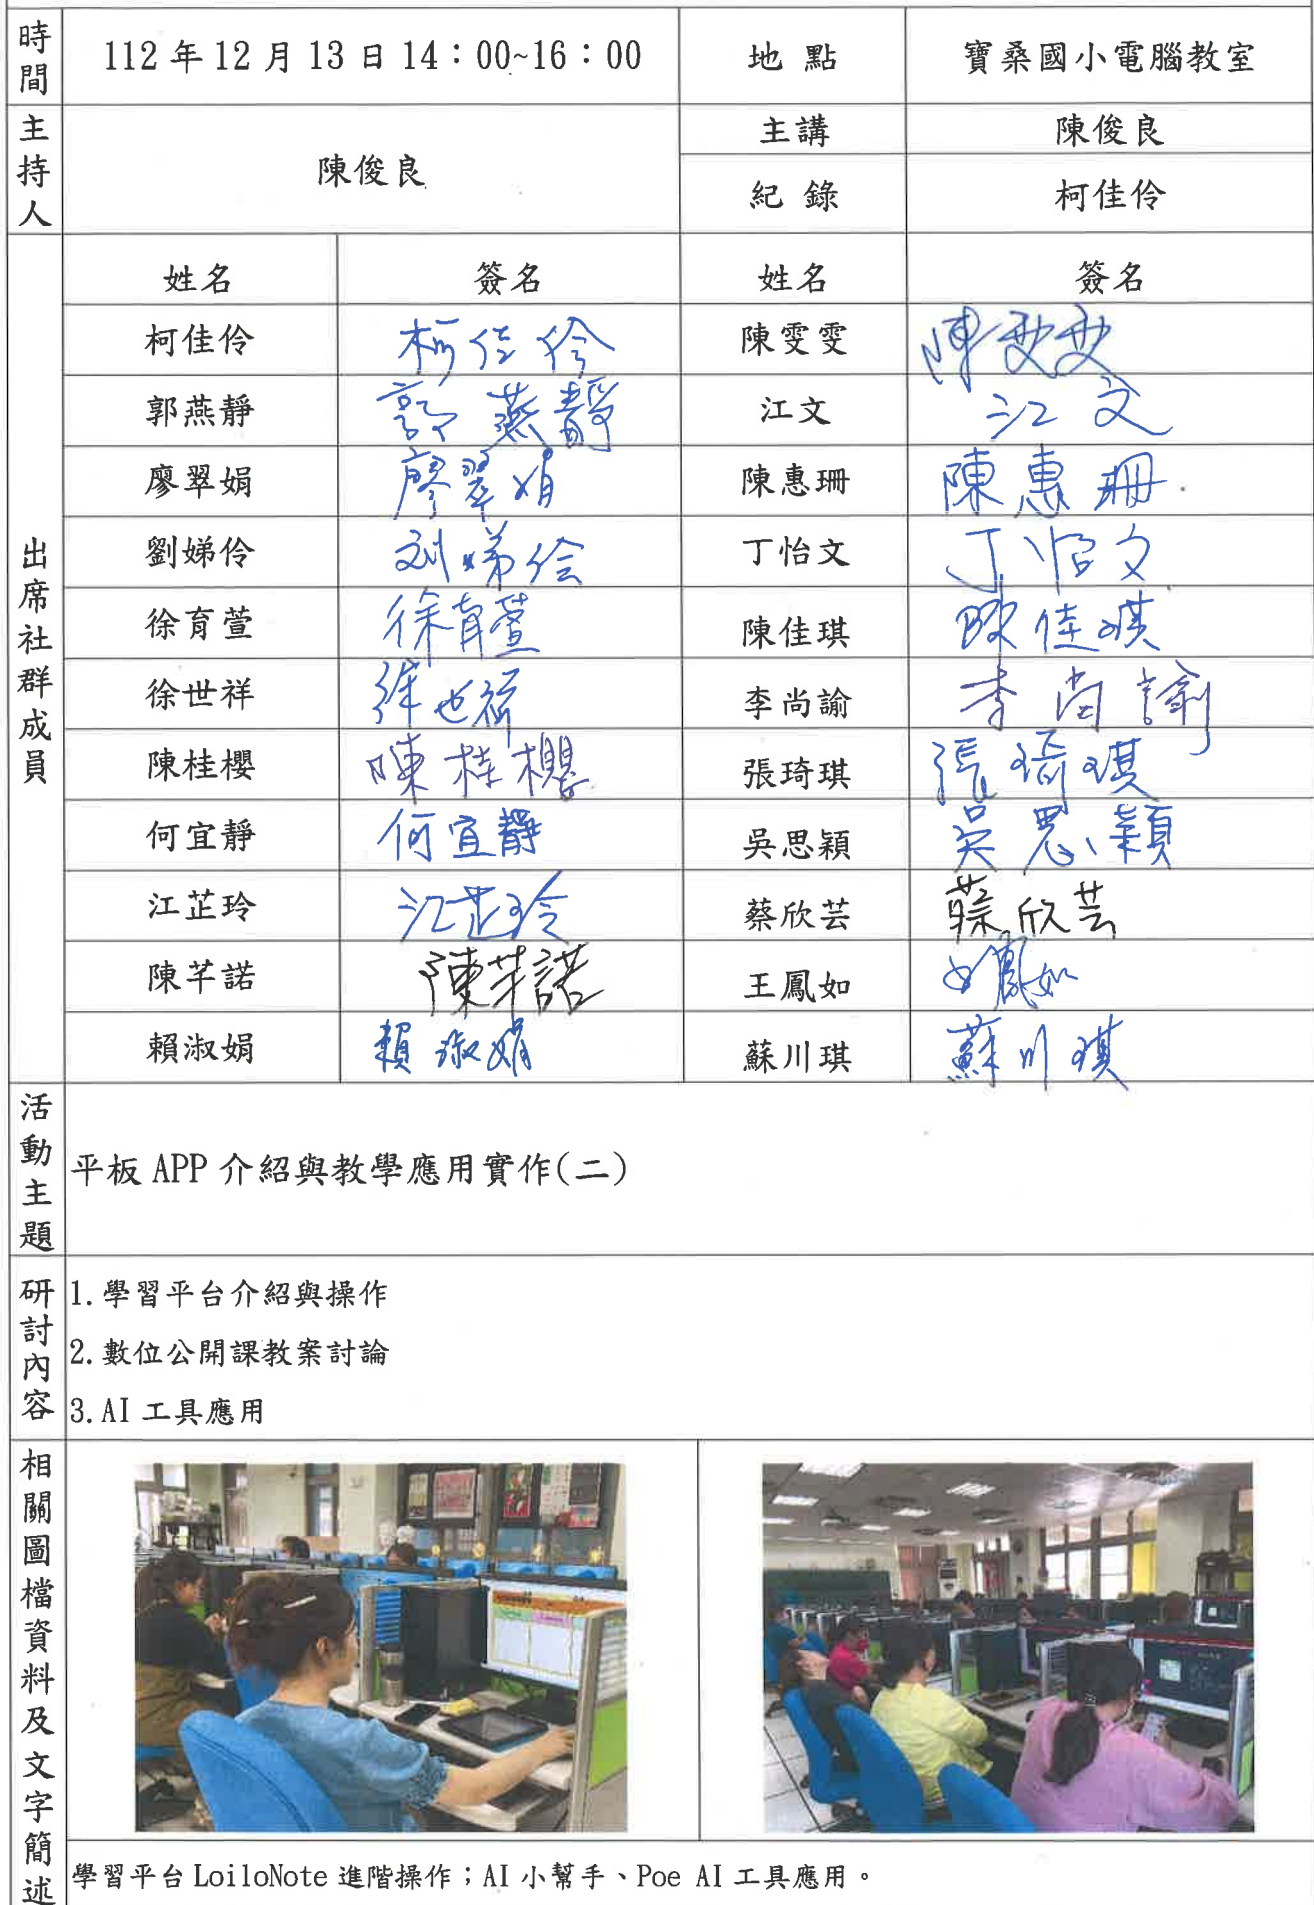 時間 112年12月13日14：00~16：00 地點 寶桑國小電腦教室
主持人 陳俊良 主講 陳俊良
紀錄 柯佳伶
出席社群成員
姓名 簽名 姓名 簽名
柯佳伶 柯佳伶 陳雯雯 陳雯雯
郭燕靜 郭燕靜 江文 江文
廖翠娟 廖翠娟 陳惠珊 陳惠珊
劉娣伶 刘娣伶 丁怡文 丁怡文
徐育萱 徐育萱 陳佳琪 陳佳琪
徐世祥 徐世祥 李尚諭 李尚諭
陳桂櫻 陳桂櫻 張琦琪 張琦琪
何宜靜 何宜靜 吳思穎 吳思穎
江芷玲 江芷玲 蔡欣芸 蔡欣芸
陳芊諾 陳芊諾 王鳳如 王鳳如
賴淑娟 賴淑娟 蘇川琪 蘇川琪
活動主題 平板 APP 介紹與教學應用實作(二)
研討內容
1.學習平台介紹與操作
2.數位公開課教案討論
3.AI 工具應用
相關圖檔資料及文字簡述
學習平台 LoiloNote 進階操作；AI 小幫手、Poe AI 工具應用。